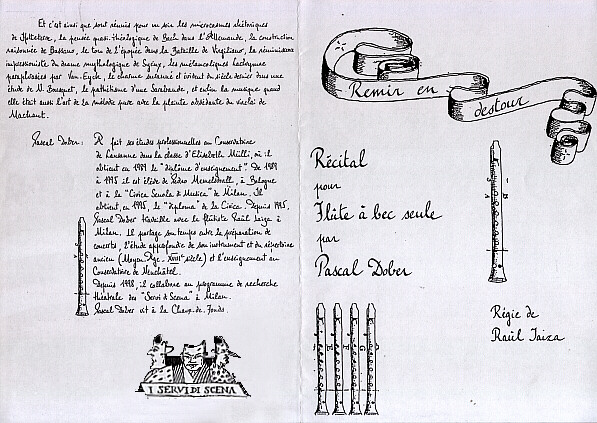 Et c'est ainsi que sont réunis pour un soir les microcosmes rhétoriques
de Hotteterre, la pensée quasi théologique de Bach dans l'Allemande, la construction
raisonnée de Bassano, le ton de l'épopée dans la Bataille de Virgiliano, la réminiscence
impressioniste du drame mythologique de Syrinx, les mélancoliques
paraphrasées par Van Eyck, le charme suranné et évident du siècle dernier dans une
étude de N. Bousquet, le pathétisme d'une Sarabande, et enfin la musique quand
elle était aussi l'art de la mélodie pure avec la plainte obsédante du virelai de
Machaut.
Pascal Dober: Il fait ses études professionelles au Conservatoire
de Lausanne dans la classe d'Elisabeth Mülli, où il
obtient en 1989 le "diplôme d'enseignement". De 1989
à 1995 il est élève de Pedro Memelsdorff, à Bologne
et à la "Civica Scuola di Musica" de Milan. Il
obtient, en 1995, le "diploma" de la Civica. Depuis 1995,
Pascal Dober travaille avec le flûtiste Raúl Iaiza à
Milan. Il partage son temps entre la préparation de
concerts, l'étude approfondie de son instrument et du répertoire
ancien (Moyen Age - XVIIIe siècle) et l'enseignement au
Conservatoire de Neuchâtel.
Depuis 1998, il collabore au programme de recherche
théâtrale des "Servi di Scena" à Milan.
Pascal Dober vit à la Chaux-de-Fonds.
I SERVI DI SCENA
Remir en
destour
Récital
pour
Flûte à bec seule
par
Pascal Dober
Régie de
Raúl Iaiza